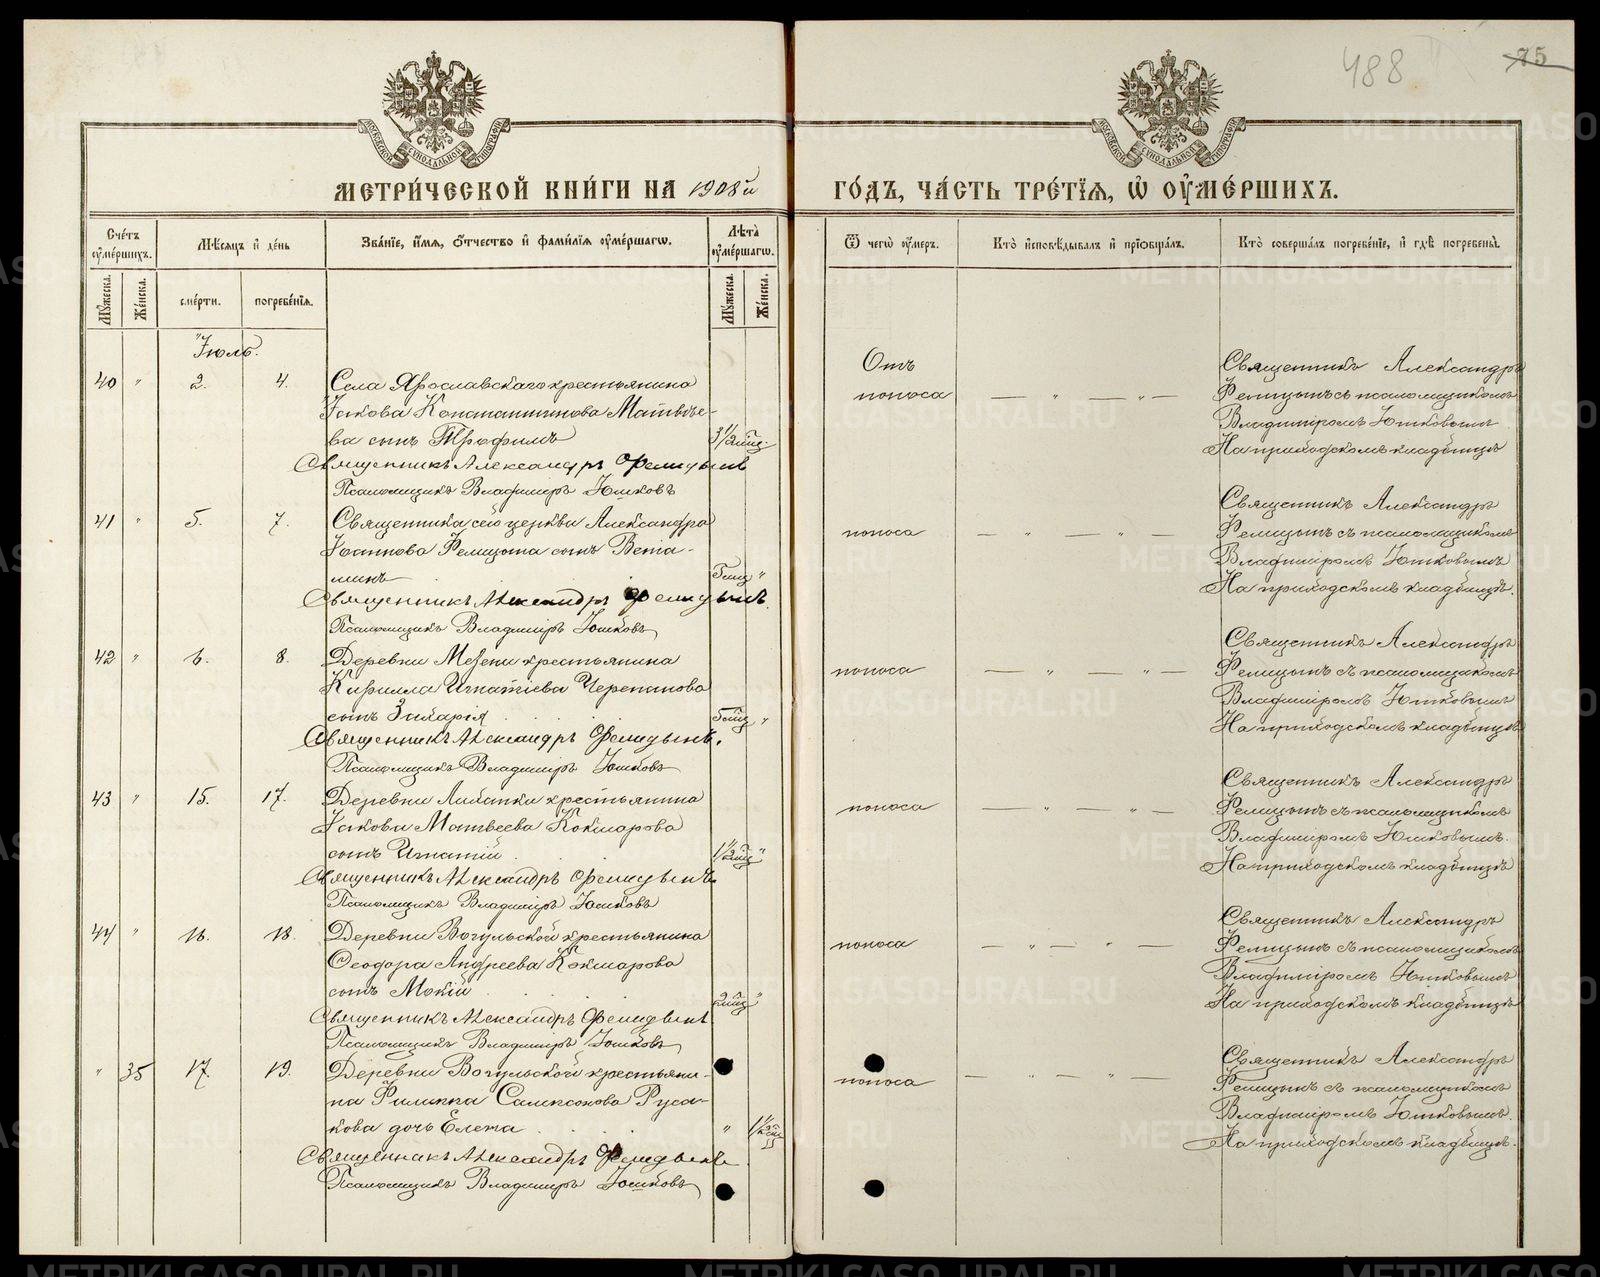 488
75
МЕТРИ́ЧЕСКОЙ КНИ́ГИ НА 1908й ГО́ДЪ, ЧА́СТЬ ТРЕ́ТIЯ, Ѡ ОУМЕ́РШИХЪ.
Счетъ оумершихъ.
Мѣсяцъ и день
Званiе, имя, отчество и фамилiя оумершагѡ.
Лѣта оумершагѡ.
Ѿ чегѡ оумеръ.
Кто исповѣдывалъ и прiобщалъ.
Кто совершалъ погребенiе, и гдѣ погребены.
Мужеска.
Женска.
смерти.
погребенiя.
Мужеска.
Женска.
Iюль.
40 " 2. 4. Села Ярославскаго крестьянина
Iакова Константинова Матвѣе-
ва сынъ Трофимъ 3 1/2 мѣс.
Священникъ Александръ
Псаломщикъ Владимiръ Юшковъ
Отъ
поноса — " — " —
Священникъ Александръ
съ псаломщикомъ
Владимiромъ Юшковымъ
На приходскомъ кладбищѣ
41 " 5. 7. Священника сей церкви Александра
Iоаннова сынъ Венiа-
минъ "
Священникъ Александръ
Псаломщикъ Владимiръ Юшковъ
поноса — " — " —
Священникъ Александръ
съ псаломщикомъ
Владимiромъ Юшковымъ
На приходскомъ кладбищѣ.
42 " 6. 8. Деревни Мезени крестьянина
Кирилла Игнатiева Черепанова
сынъ Захарiя "
Священникъ Александръ
Псаломщикъ Владимiръ Юшковъ
поноса — " — " —
Священникъ Александръ
съ псаломщикомъ
Владимiромъ Юшковымъ
На приходскомъ кладбищѣ
43 " 15. 17. Деревни крестьянина
Iакова Матвеева Кокшарова
сынъ Игнатiй 1 1/2 мѣс "
Священникъ Александръ
Псаломщикъ Владимiръ Юшковъ
поноса — " — " —
Священникъ Александръ
съ псаломщикомъ
Владимiромъ Юшковымъ.
На приходскомъ кладбищѣ
44 " 16. 18. Деревни Вогульской крестьянина
Ѳеодора Андреева Кокшарова
сынъ Мокiй 2 мѣс "
Священникъ Александръ
Псаломщикъ Владимiръ Юшковъ
поноса — " — " —
Священникъ Александръ
съ псаломщикомъ
Владимiромъ Юшковымъ
На приходскомъ кладбищѣ
" 35 17. 19. Деревни Вогульской крестьяни-
на Филиппа Самсонова Руса-
кова дочь Елена " 1 1/2
Священникъ Александръ
Псаломщикъ Владимiръ Юшковъ
поноса — " — " —
Священникъ Александръ
съ псаломщикомъ
Владимiромъ Юшковымъ.
На приходскомъ кладбищѣ.
METRIKI.GASO-URAL.RU